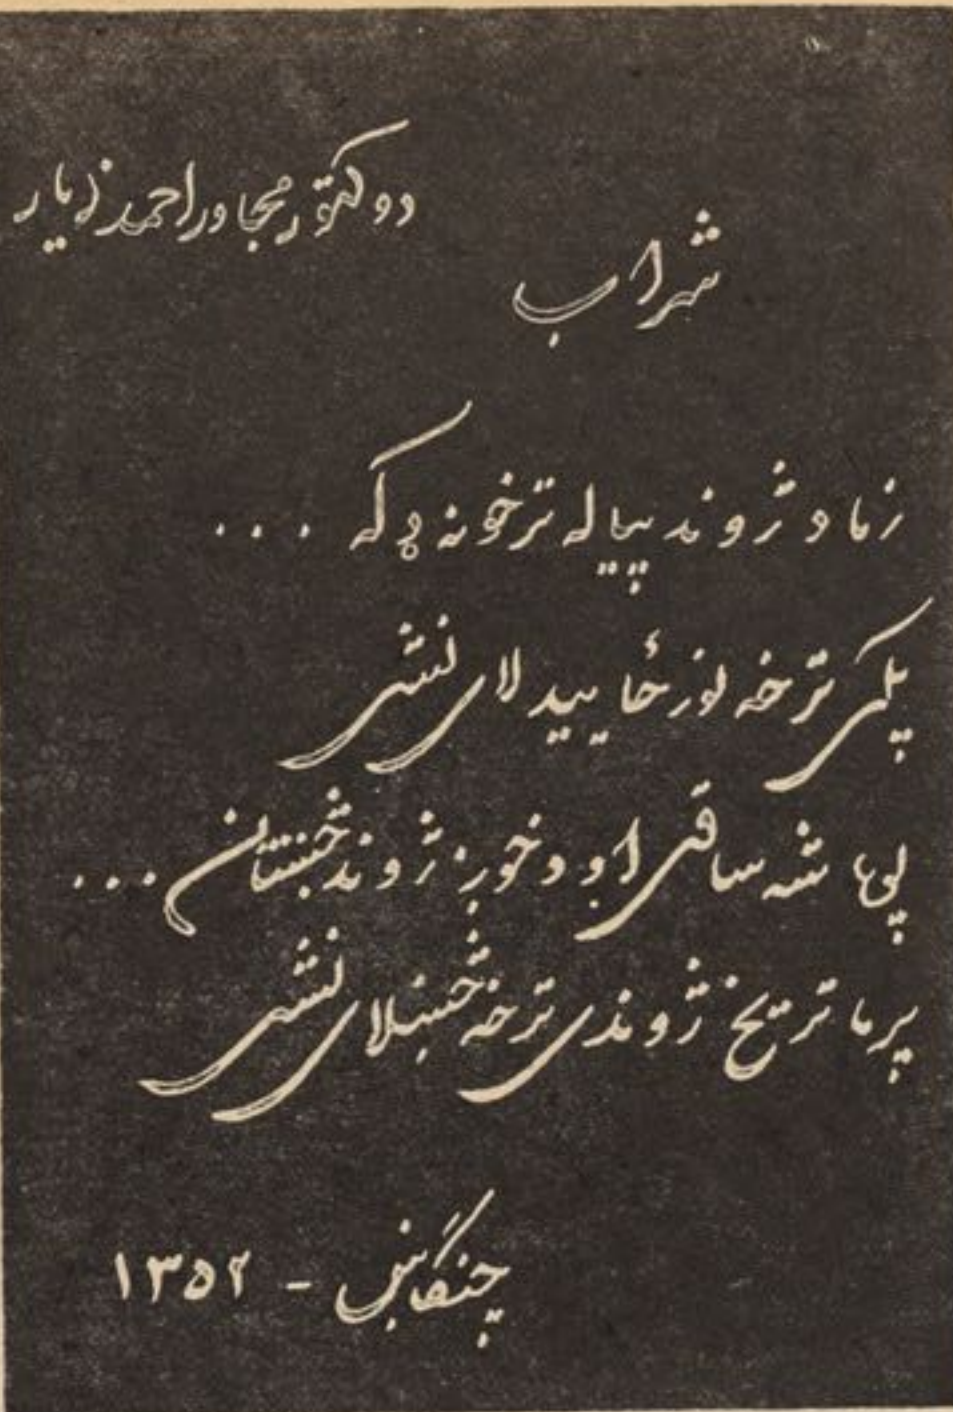 دوکتور مجاور احمد زیار
شراب
زما د ژوند پیاله ترخونه ډکه ...
پلی ترخه نور ځاییدلای نشی
پی‌ما شه ساقی او د خوږ ژوند څښتان ...
پر ما تریخ ژوندی ترخه څښلای نشی
چنگاښ - ۱۳۵۲